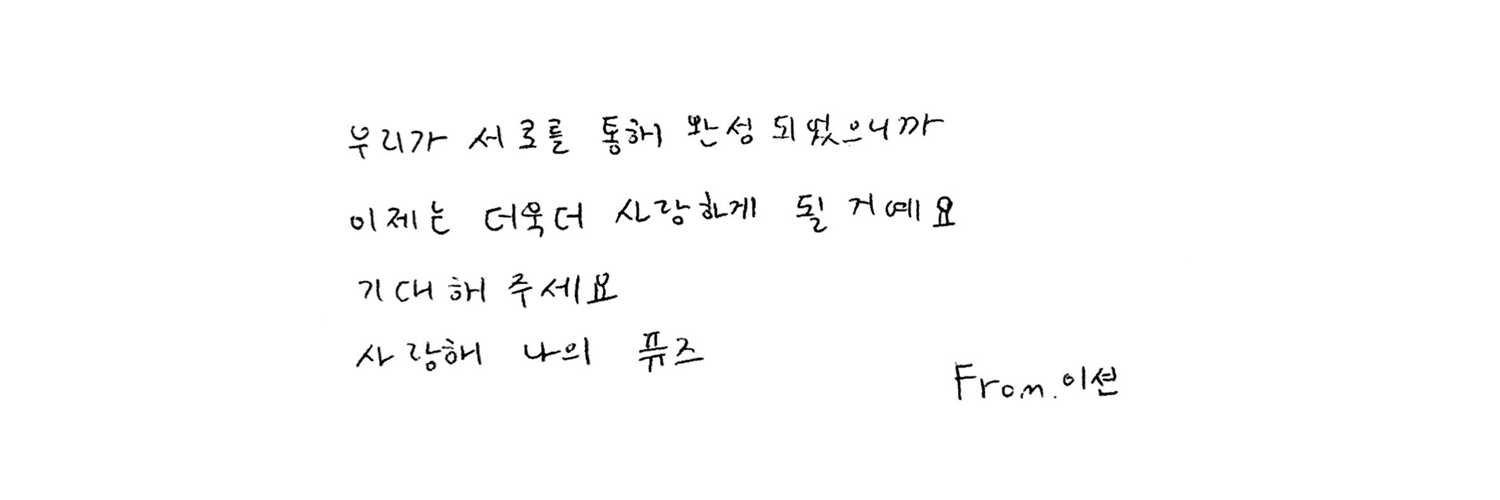 우리가 서로를 통해 완성되었으니까
이제는 더욱더 사랑하게 될 거예요
기대해 주세요
사랑해 나의 퓨즈
From. 이션